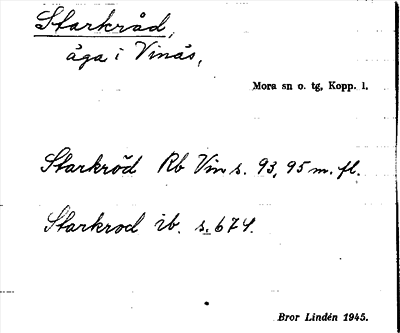 Starkråd,
åga i Vinäs,
Mora sn o. tg, Kopp. l.
Starkröd Rb Vin s. 93, 95 m. fl.
Starkrod ib. s. 674.
Bror Lindén 1945.